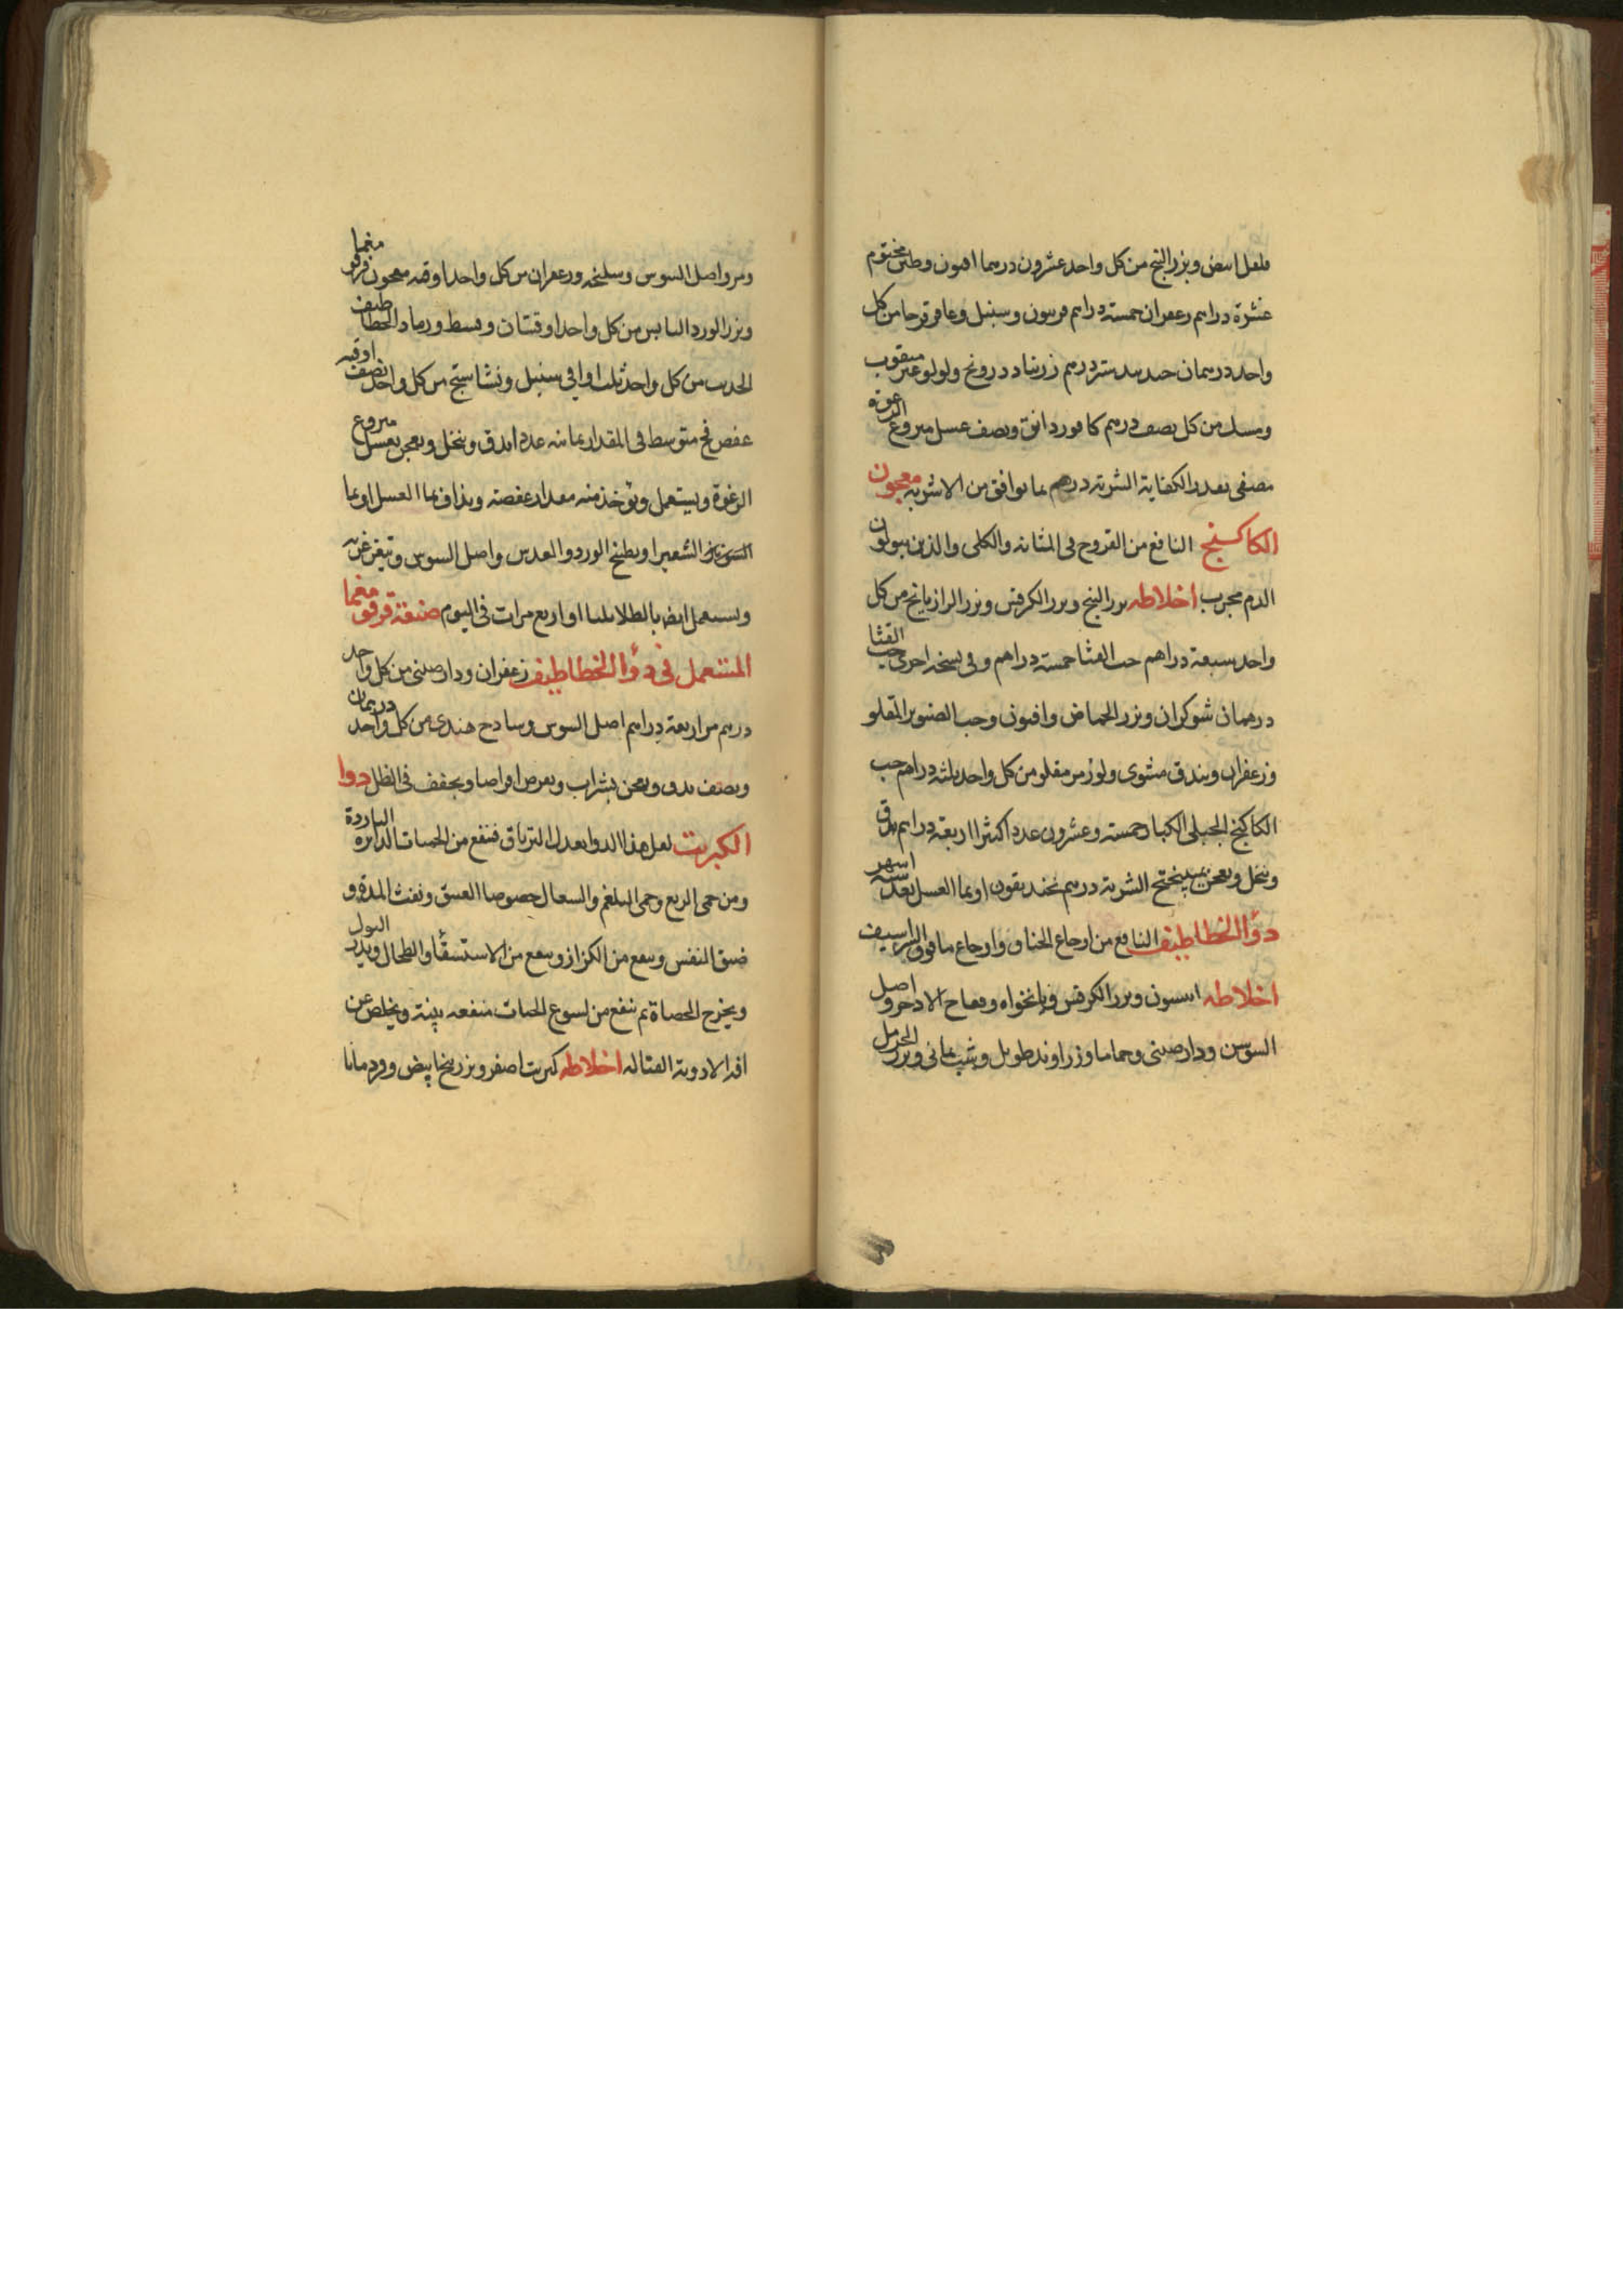 فلفل ابيض وبزر البنج من كل واحد عشرون درهما افيون وطين مختوم
عشرة دراهم زعفران خمسة دراهم فربيون وسنبل وعاقرقرحا من كل
واحد درهمان جندبيدستر درهم زرنباد درونج ولولو غير مثقوب
ومسك من كل نصف درهم كافور دانق ونصف عسل منزوع الرغوة
مصفى بقدر الكفاية الشربة درهم بما يوافق من الاشربة معجون
الكاكنج النافع من القروح فى المثانه والكلى والذين يبولون
الدم مجرب اخلاطه بزر البنج وبزر الكرفس وبزر الرازيانج من كل
واحد سبعة دراهم حب القثا خمسة دراهم وفى نسخه اخرى حب القثا
درهمان شوكران وبزر الحماض وافيون وحب الصنوبر المقلو
وزعفران وبندق مشوى ولوز مر مقلو من كل واحد ثلثه دراهم حب
الكاكنج الجبلى الكبار خمسة وعشرون عددا كثيرا اربعة دراهم يدق
وينخل ويعجن بميبختج الشربة درهم بخنديقون او بما العسل بعد ستة اشهر
دوٴا الخطاطيف النافع من اوجاع الخناق واوجاع ما فوق الشراسيف
اخلاطه انيسون وبزر الكرفس ونانخواه وفقاح الاذخر واصل
السوسن ودارصينى وحماما وزراوند طويل وشب يمانى وبزر الحرمل
ومر واصل السوس وسليخه وزعفران من كل واحد اوقيه معجون قرقومغما
وبزر الورد اليابس من كل واحد اوقيتان وقسط ورماد الخطاطيف
الحديث من كل واحد ثلث اواقى سنبل ونشاستج من كل واحد نصف اوقيه
عفص فج متوسط فى المقدار ثمانيه عددا يدق وينخل ويعجن بعسل منزوع
الرغوة ويستعمل ويوخذ منه مقدار عفصة ويذاف بما العسل او بما
الشعير او بطبخ الورد والعدس واصل السوس ويتغرغر به
ويستعمل ايضا بالطلا ثلثا او اربع مرات فى اليوم صنعة قرقومغما
المستعمل فى دوٴا الخطاطيف زعفران ودارصينى من كل واحد
درهم مر اربعة دراهم اصل السوس وسادج هندى من كل واحد درهمان
ونصف يدق ويعجن بشراب ويقرص اقراصا ويجفف فى الظل دوا
الكبريت لعل هذا الدوا يعدل الترياق فينفع من الحميات الدايرة الباردة
ومن حمى الربع وحمى البلغم والسعال خصوصا العتيق ونفث المدة و
ضيق النفس وينفع من الكزاز وينفع من الاستسقٴا والطحال ويدر البول
ويخرج الحصاة ثم ينفع من لسوع الحيات منفعه بينة ويخلص عن
افة الادوية القتاله اخلاطه كبريت اصفر وبزر بنج ابيض وقردمانا